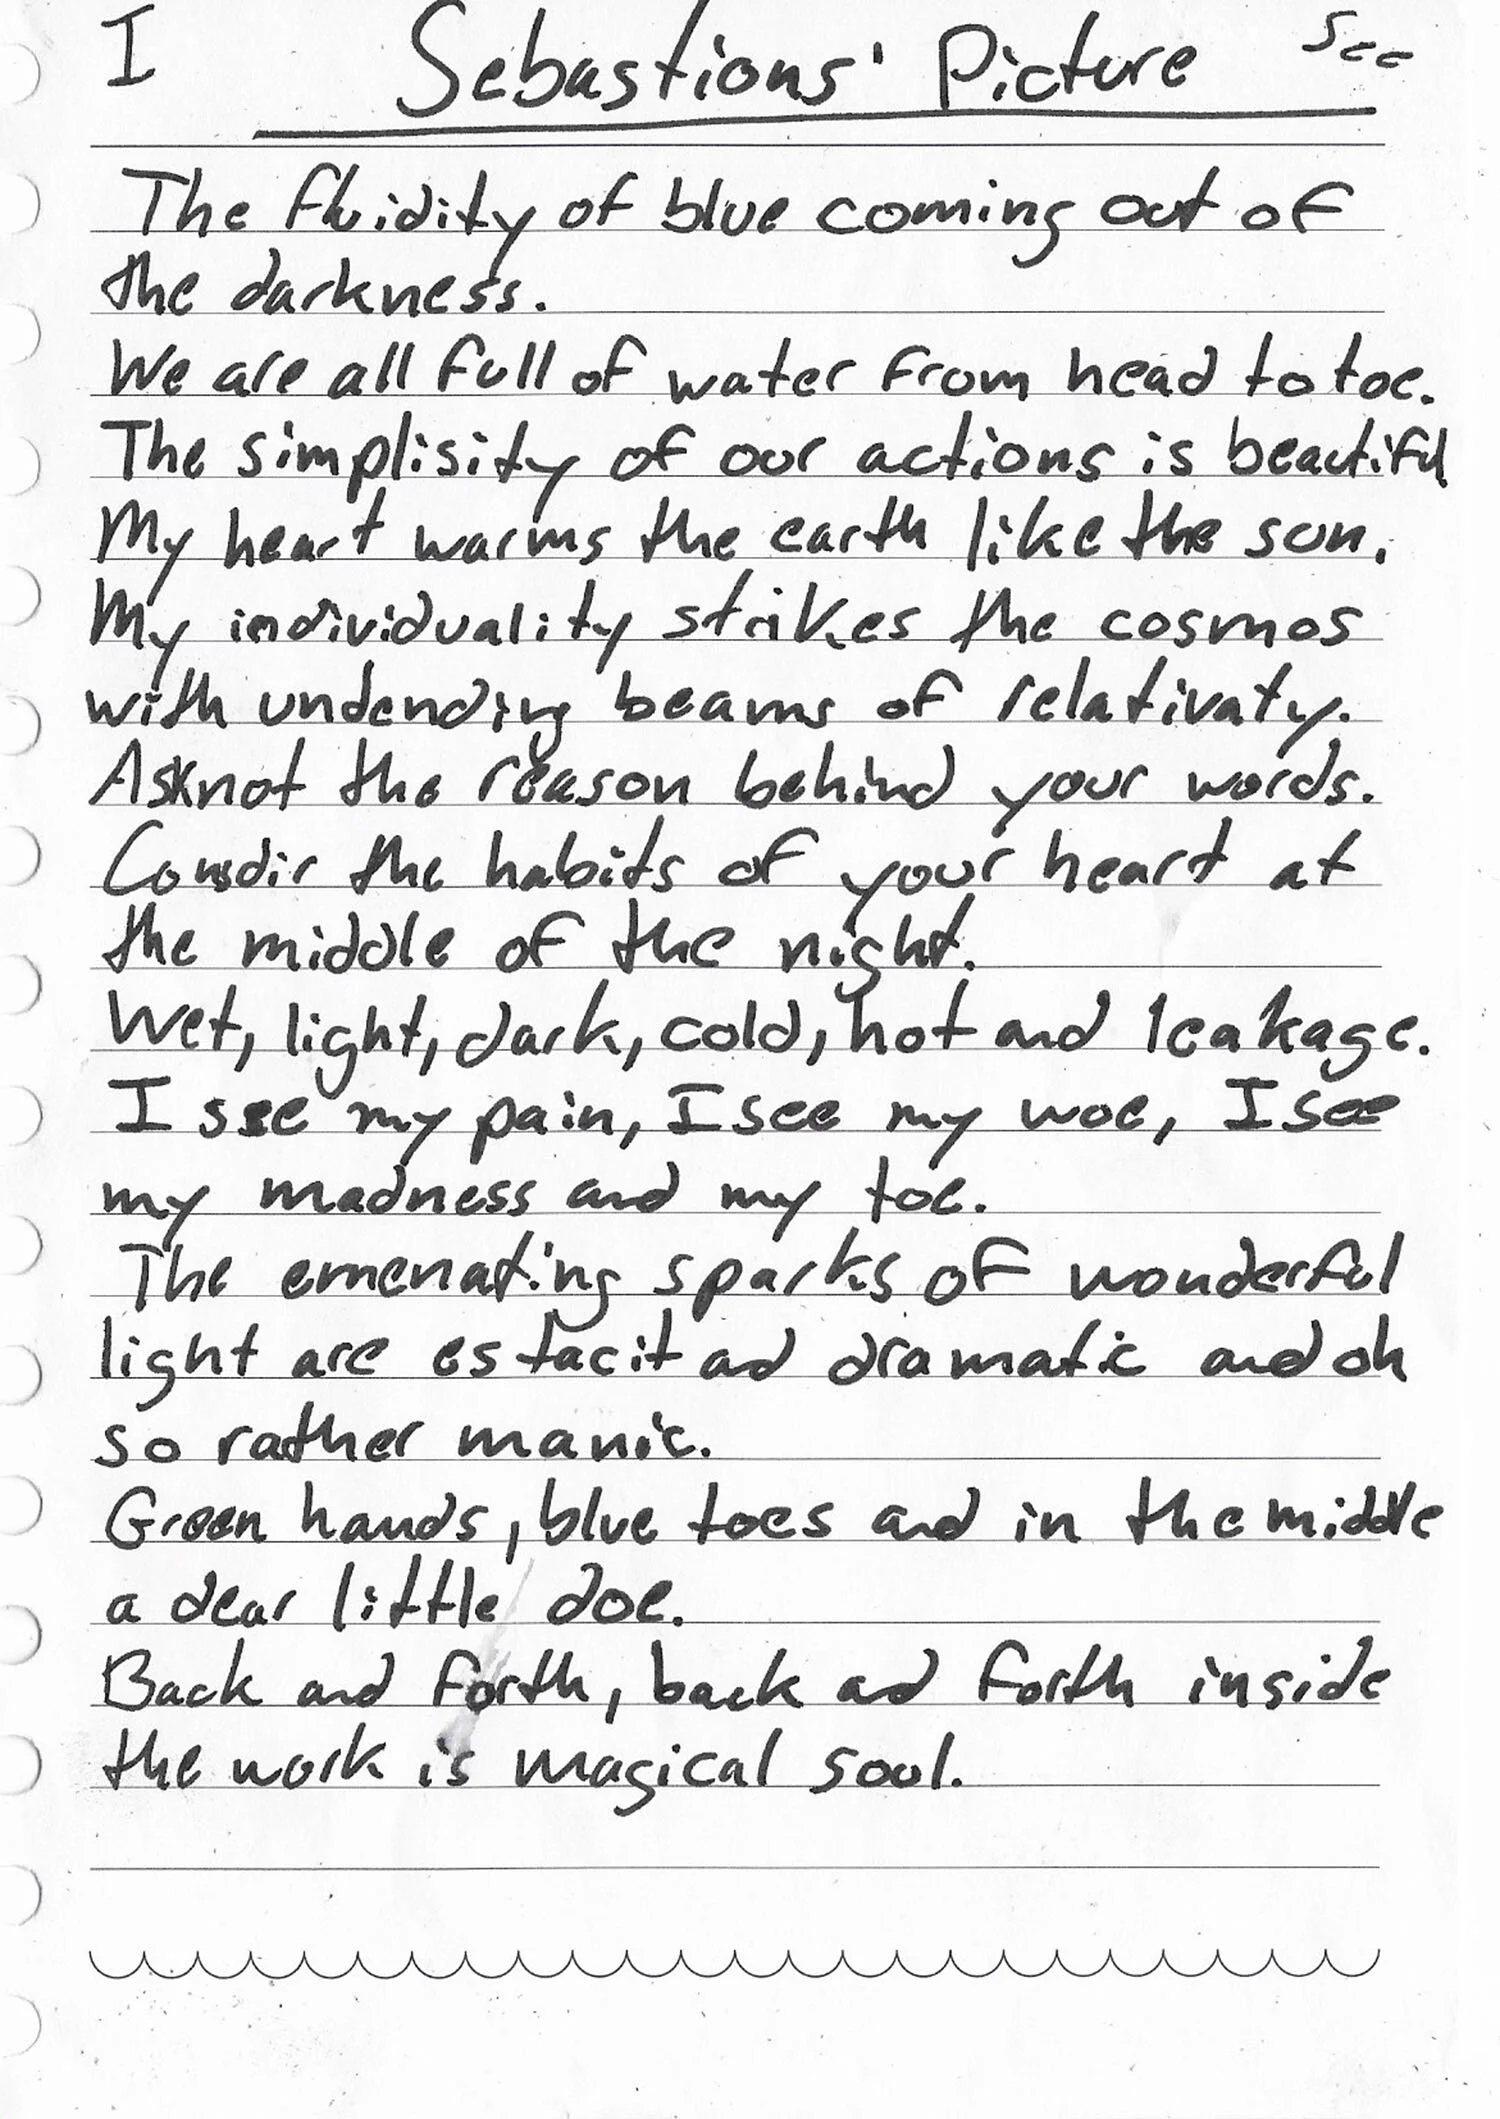 I Sebastions' Picture See
The fluidity of blue coming out of
the darkness.
We are all full of water from head to toe.
The simplisity of our actions is beautiful
My heart warms the earth like the sun.
My individuality strikes the cosmos
with undending beams of relativaty.
Ask not the reason behind your words.
Consdir the habits of your heart at
the middle of the night.
Wet, light, dark, cold, hot and leakage.
I see my pain, I see my woe, I see
my madness and my toe.
The emenating sparks of wonderful
light are estacit ad dramatic and oh
so rather manic.
Green hands, blue toes and in the middle
a dear little doe.
Back and forth, back ad forth inside
the work is magical soul.